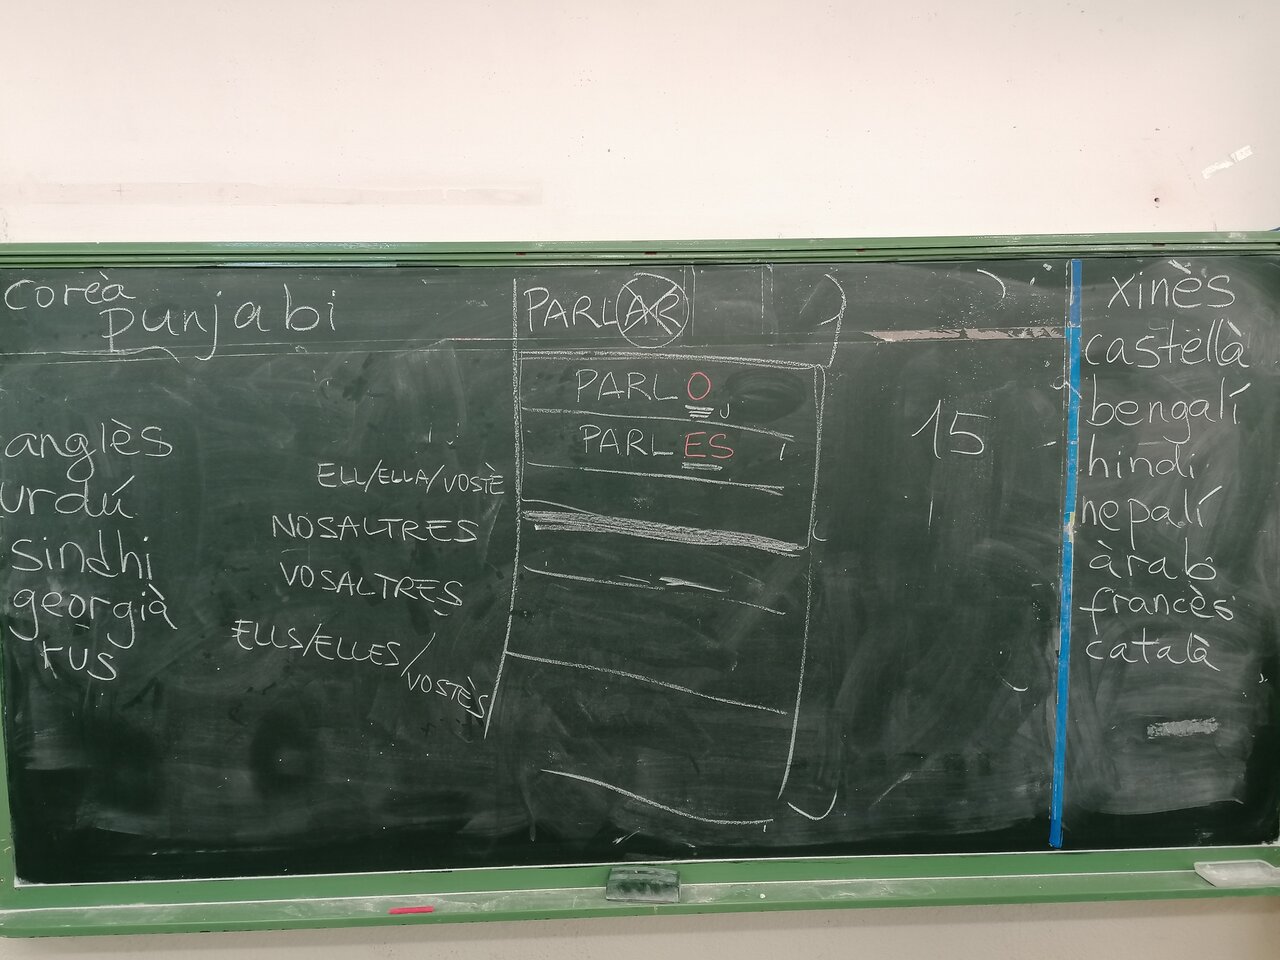 coreà
punjabi
anglès
urdú
sindhi
georgià
rus
PARLAR
PARLO
PARLES
ELL/ELLA/VOSTÈ
NOSALTRES
VOSALTRES
ELLS/ELLES/
VOSTÈS
15
xinès
castellà
bengalí
hindi
nepalí
àrab
francès
català